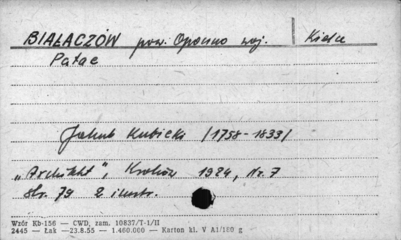 BIAŁACZÓW pow. Opoczno woj. Kielce
Pałac
Jakub Kubicki /1758-1833/
„Architekt", Kraków 1924, Nr. 7
str. 79 2 ilustr.
Wzór Kb-156 — CWD, zam. 10837/T-1/II
2445 — Łak —23.8.55 — 1.460.000 — Karton kl. V A1/160 g